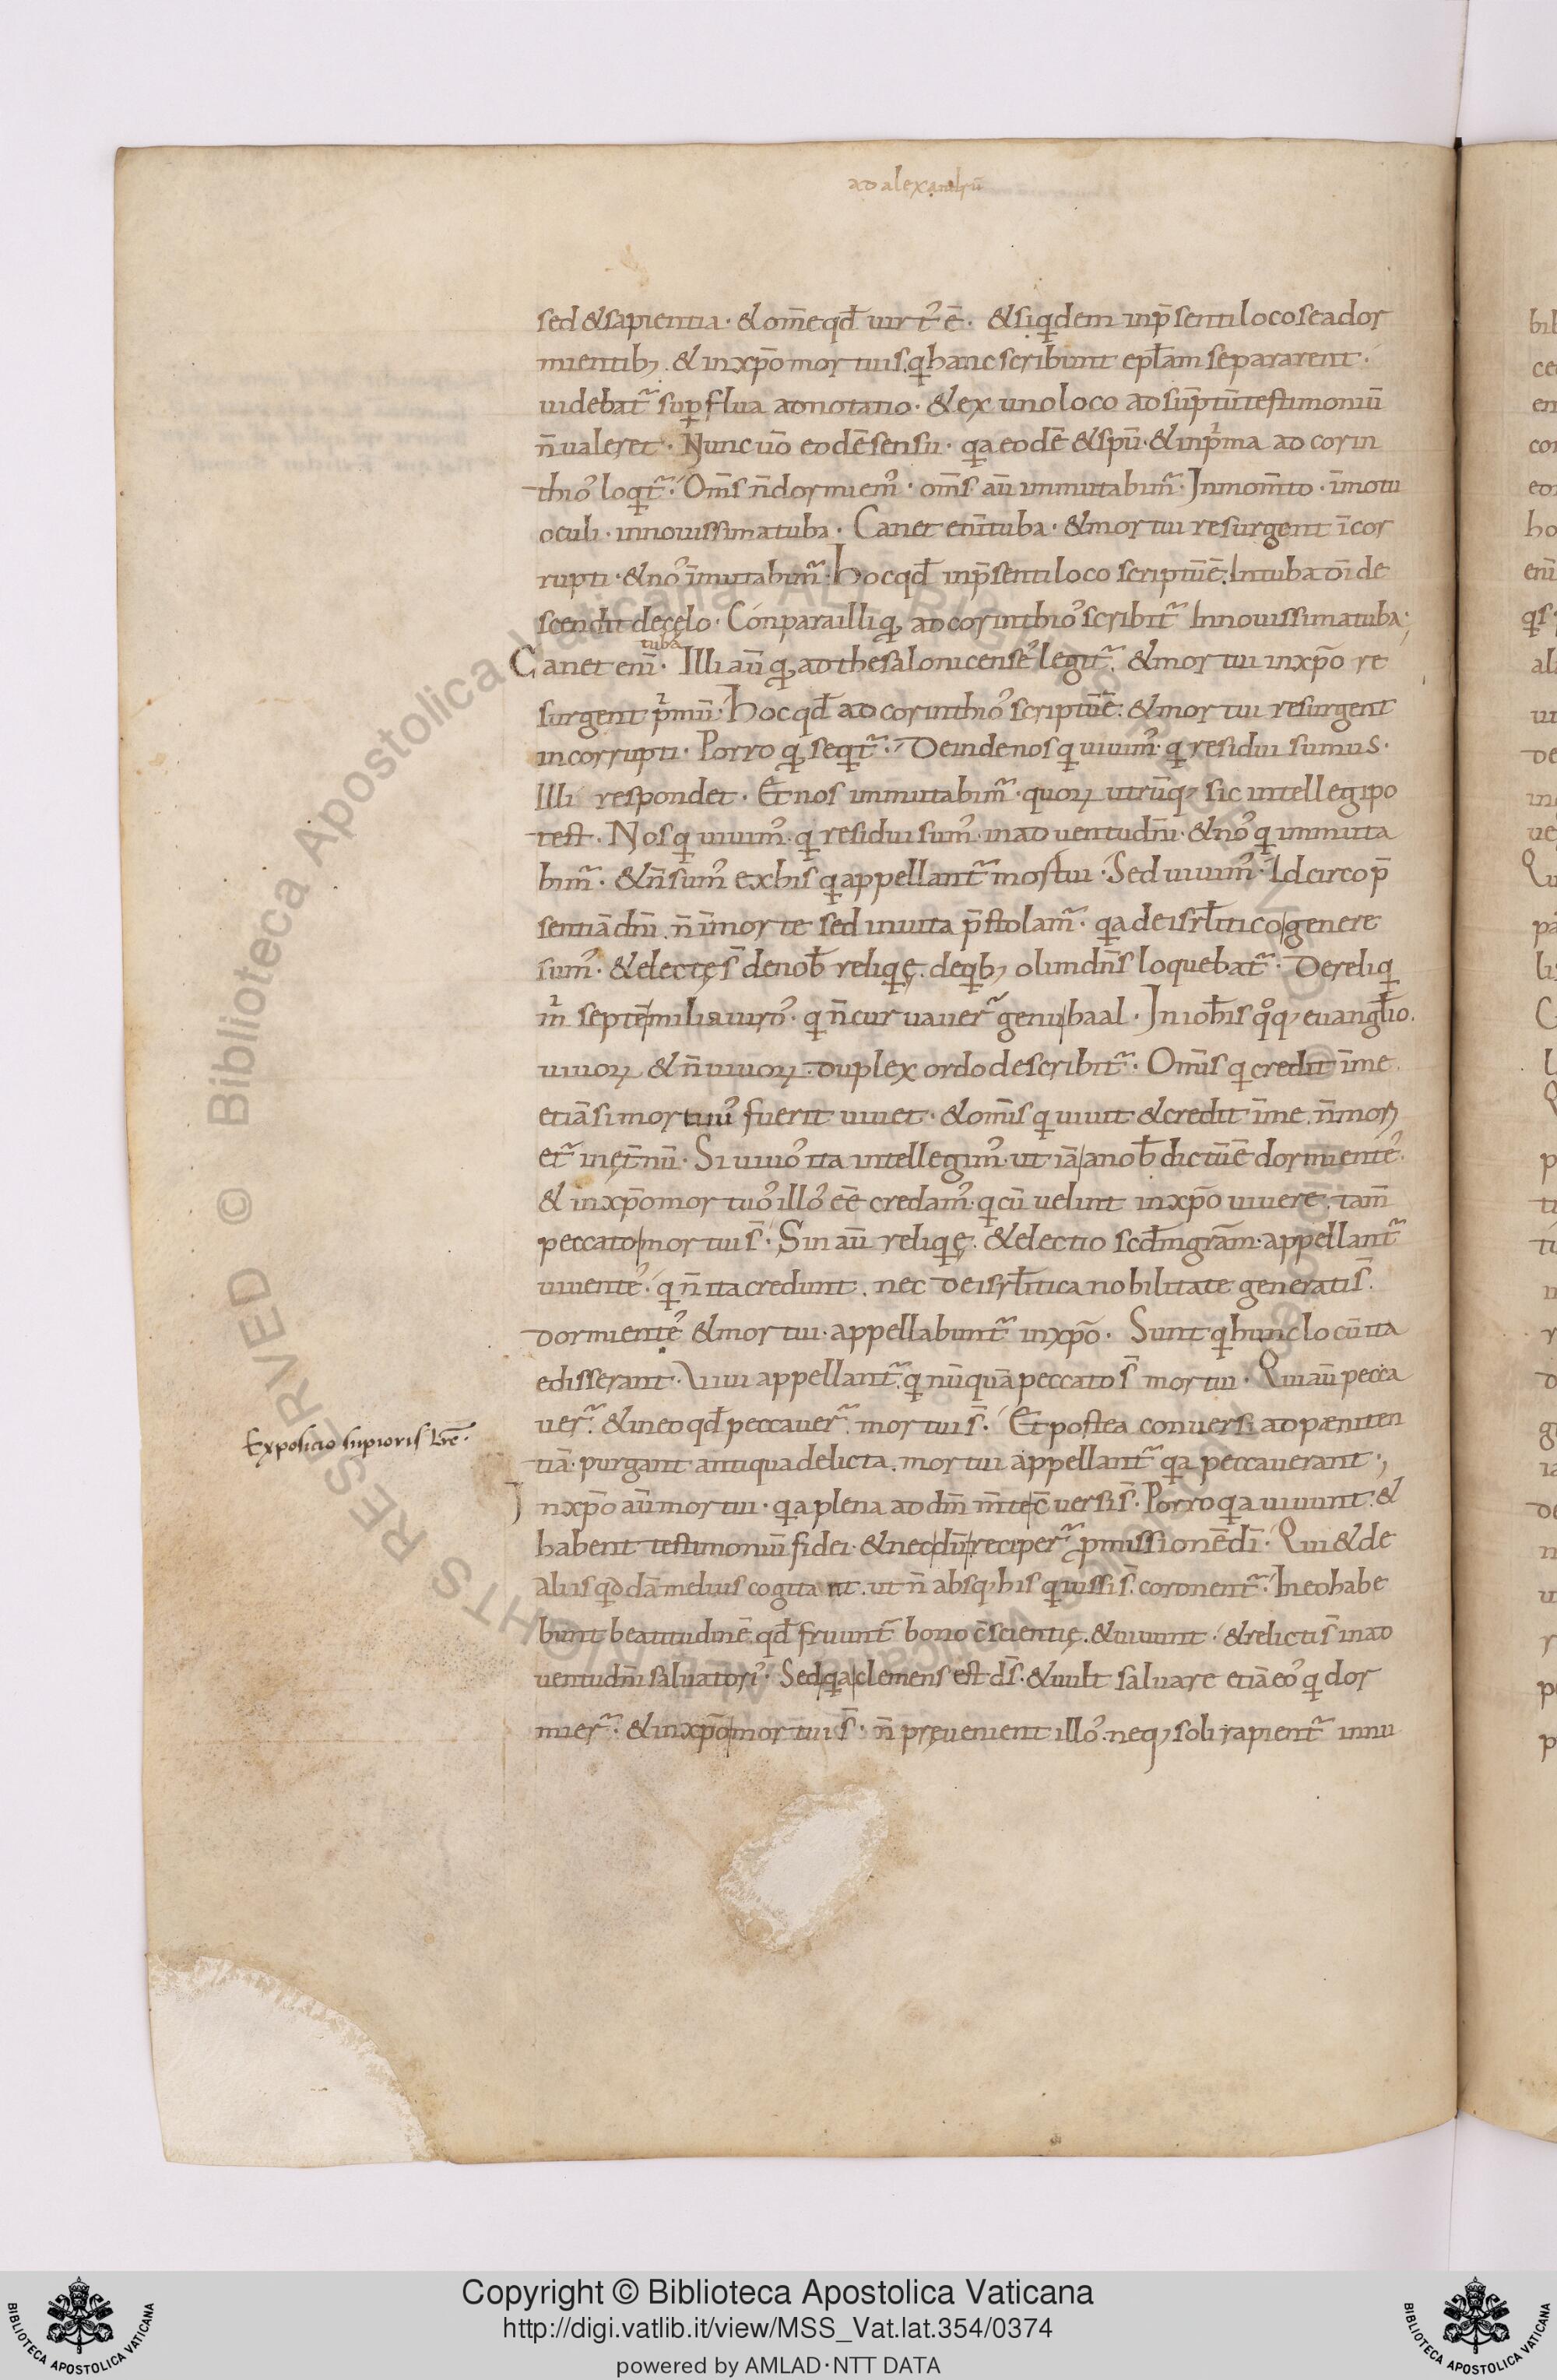 ad alexandrū
sed & sapientia · & om̄e qd̄ uirt᾽ ē · & siqdem in p̄senti loco se a dor
mientib; & in xp̄o mortuis q hanc scribunt epl̄am separarent ·
uidebat᷑ supflua adnotatio · & ex uno loco adsūptū testimoniū
n̄ ualeret · Nunc uō eodē sensu · qa eodē & spū · & in pma ad corin
thio᾽ loqt᷑ · Om̄s n̄ dormiem᾽ · om̄s aū immutabim᷑ · In mom̄to · ī motu
oculi · in nouissima tuba · Canet enī tuba · & mortui resurgent īcor
rupti · & no᾽ īmutabim᷑ · Hoc qd̄ in p̄senti loco scriptū ē · In tuba dī de
scendit de cęlo · Conpara illi q ad corinthio᾽ scribit᷑ In nouissima tuba ·
Canet enī tuba · Illi aū q ad thesalonicense᾽ legit᷑ · & mortui in xp̄o re
surgent pmū · Hoc qd̄ ad corinthio᾽ scriptū ē · & mortui resurgent
incorrupti · Porro q seqt᷑ · Deinde nos q uiuim᾽ · q residui sumus ·
Illi respondet · Et nos immutabim᷑ · quoꝝ utrūq; sic intellegi po
test · Nos q uiuim᾽ · q residui sum᾽ · in aduentu dn̄i · & no᾽ q immuta
bim᷑ · & n̄ sum᾽ ex his q appellant᷑ mortui · Sed uiuim᾽ · Idcirco p̄
sentiā dn̄i n̄ ī morte sed in uita p̄stolam᷑ · qa de isrl̄itico genere
sum᾽ · & electę s̄ de nob̄ reliqę · de qb; olim dn̄s loquebat᷑ · Dereliq
m septē milia uiro᾽ · q n̄ curuauer᷑ genu baal · In ioh̄is qq; euangl̄io ·
uiuoꝝ & n̄ uiuoꝝ · duplex ordo describit᷑ · Om̄is q credit ī me ·
etiā si mortuu᾽ fuerit uiuet · & om̄is q uiuit & credit ī me · n̄ mori
et᷑ in ęt̄nū · Si uiuo᾽ ita intellegim᾽ · ut iā a nob̄ dictū ē dormiente᾽ ·
& in xp̄o mortuo᾽ illo᾽ eē credam᾽ · q cū uelint in xp̄o uiuere · tam̄
peccato mortui s̄ · Sin aū reliqę · & electio scd̄m grām · appellant᷑
uiuente᾽ · q n̄ ita credunt · nec de isrl̄itica nobilitate generati s̄ ·
dormiente᾽ & mortui · appellabunt᷑ in xp̄o · Sunt q hunc locū ita
edisserant · Uiui appellant᷑ · q nūquā peccato s̄ mortui · Qui aū pecca
uer᷑ · & in eo qd̄ peccauer᷑ mortui s̄ · Et postea conuersi ad pæniten
Exposicio supioris lr̄e ·
tiā · purgant antiqua delicta · mortui appellant᷑ qa peccauerant ·
In xp̄o aū mortui · qa plena ad dm̄ m̄te c̄uersi s̄ · Porro qa uiuunt · &
habent testimoniū fidei · & necdū reciper᷑ pmissionē dī · Qui & de
aliis qddā melius cogitant · ut n̄ absq; his q iussi s̄ · coronent᷑ · In eo habe
bunt beatitudinē · qd̄ fruunt᷑ bono c̄scientię · & uiuunt · & relicti s̄ in ad
uentu dn̄i saluatori᾽ · Sed qa clemens est ds̄ · & uult saluare etiā eo᾽ q dor
mier᷑ · & in xp̄o mortui s̄ · n̄ pręuenient illo᾽ · neq; soli rapient᷑ in nu
Copyright © Biblioteca Apostolica Vaticana
http://digi.vatlib.it/view/MSS_Vat.lat.354/0374
powered by AMLAD·NTT DATA